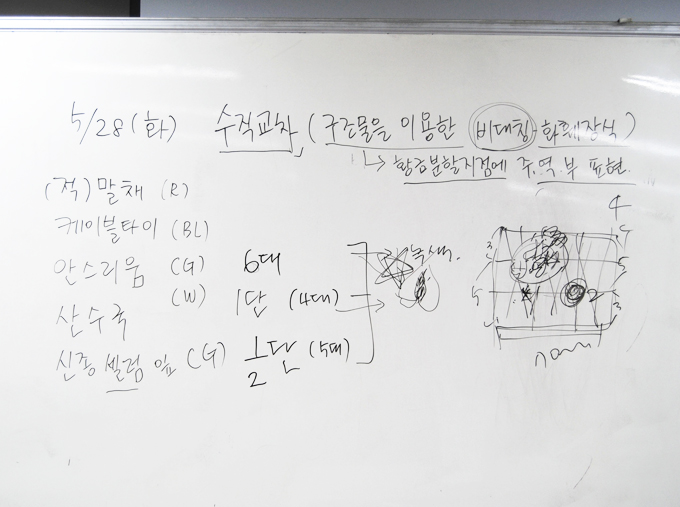 5/28(화) 수직교차 (구조물을 이용한 비대칭 화훼장식)
↳ 황금분할지점에 주.역.부 표현.
(적) 말채 (R)
케이블타이 (BL)
안스리움 (G) 6대
산수국 (W) 1단 (4대)
신종 셀럼 잎 (G) 1/2단 (5대)
녹색.
4
5
5
2
3